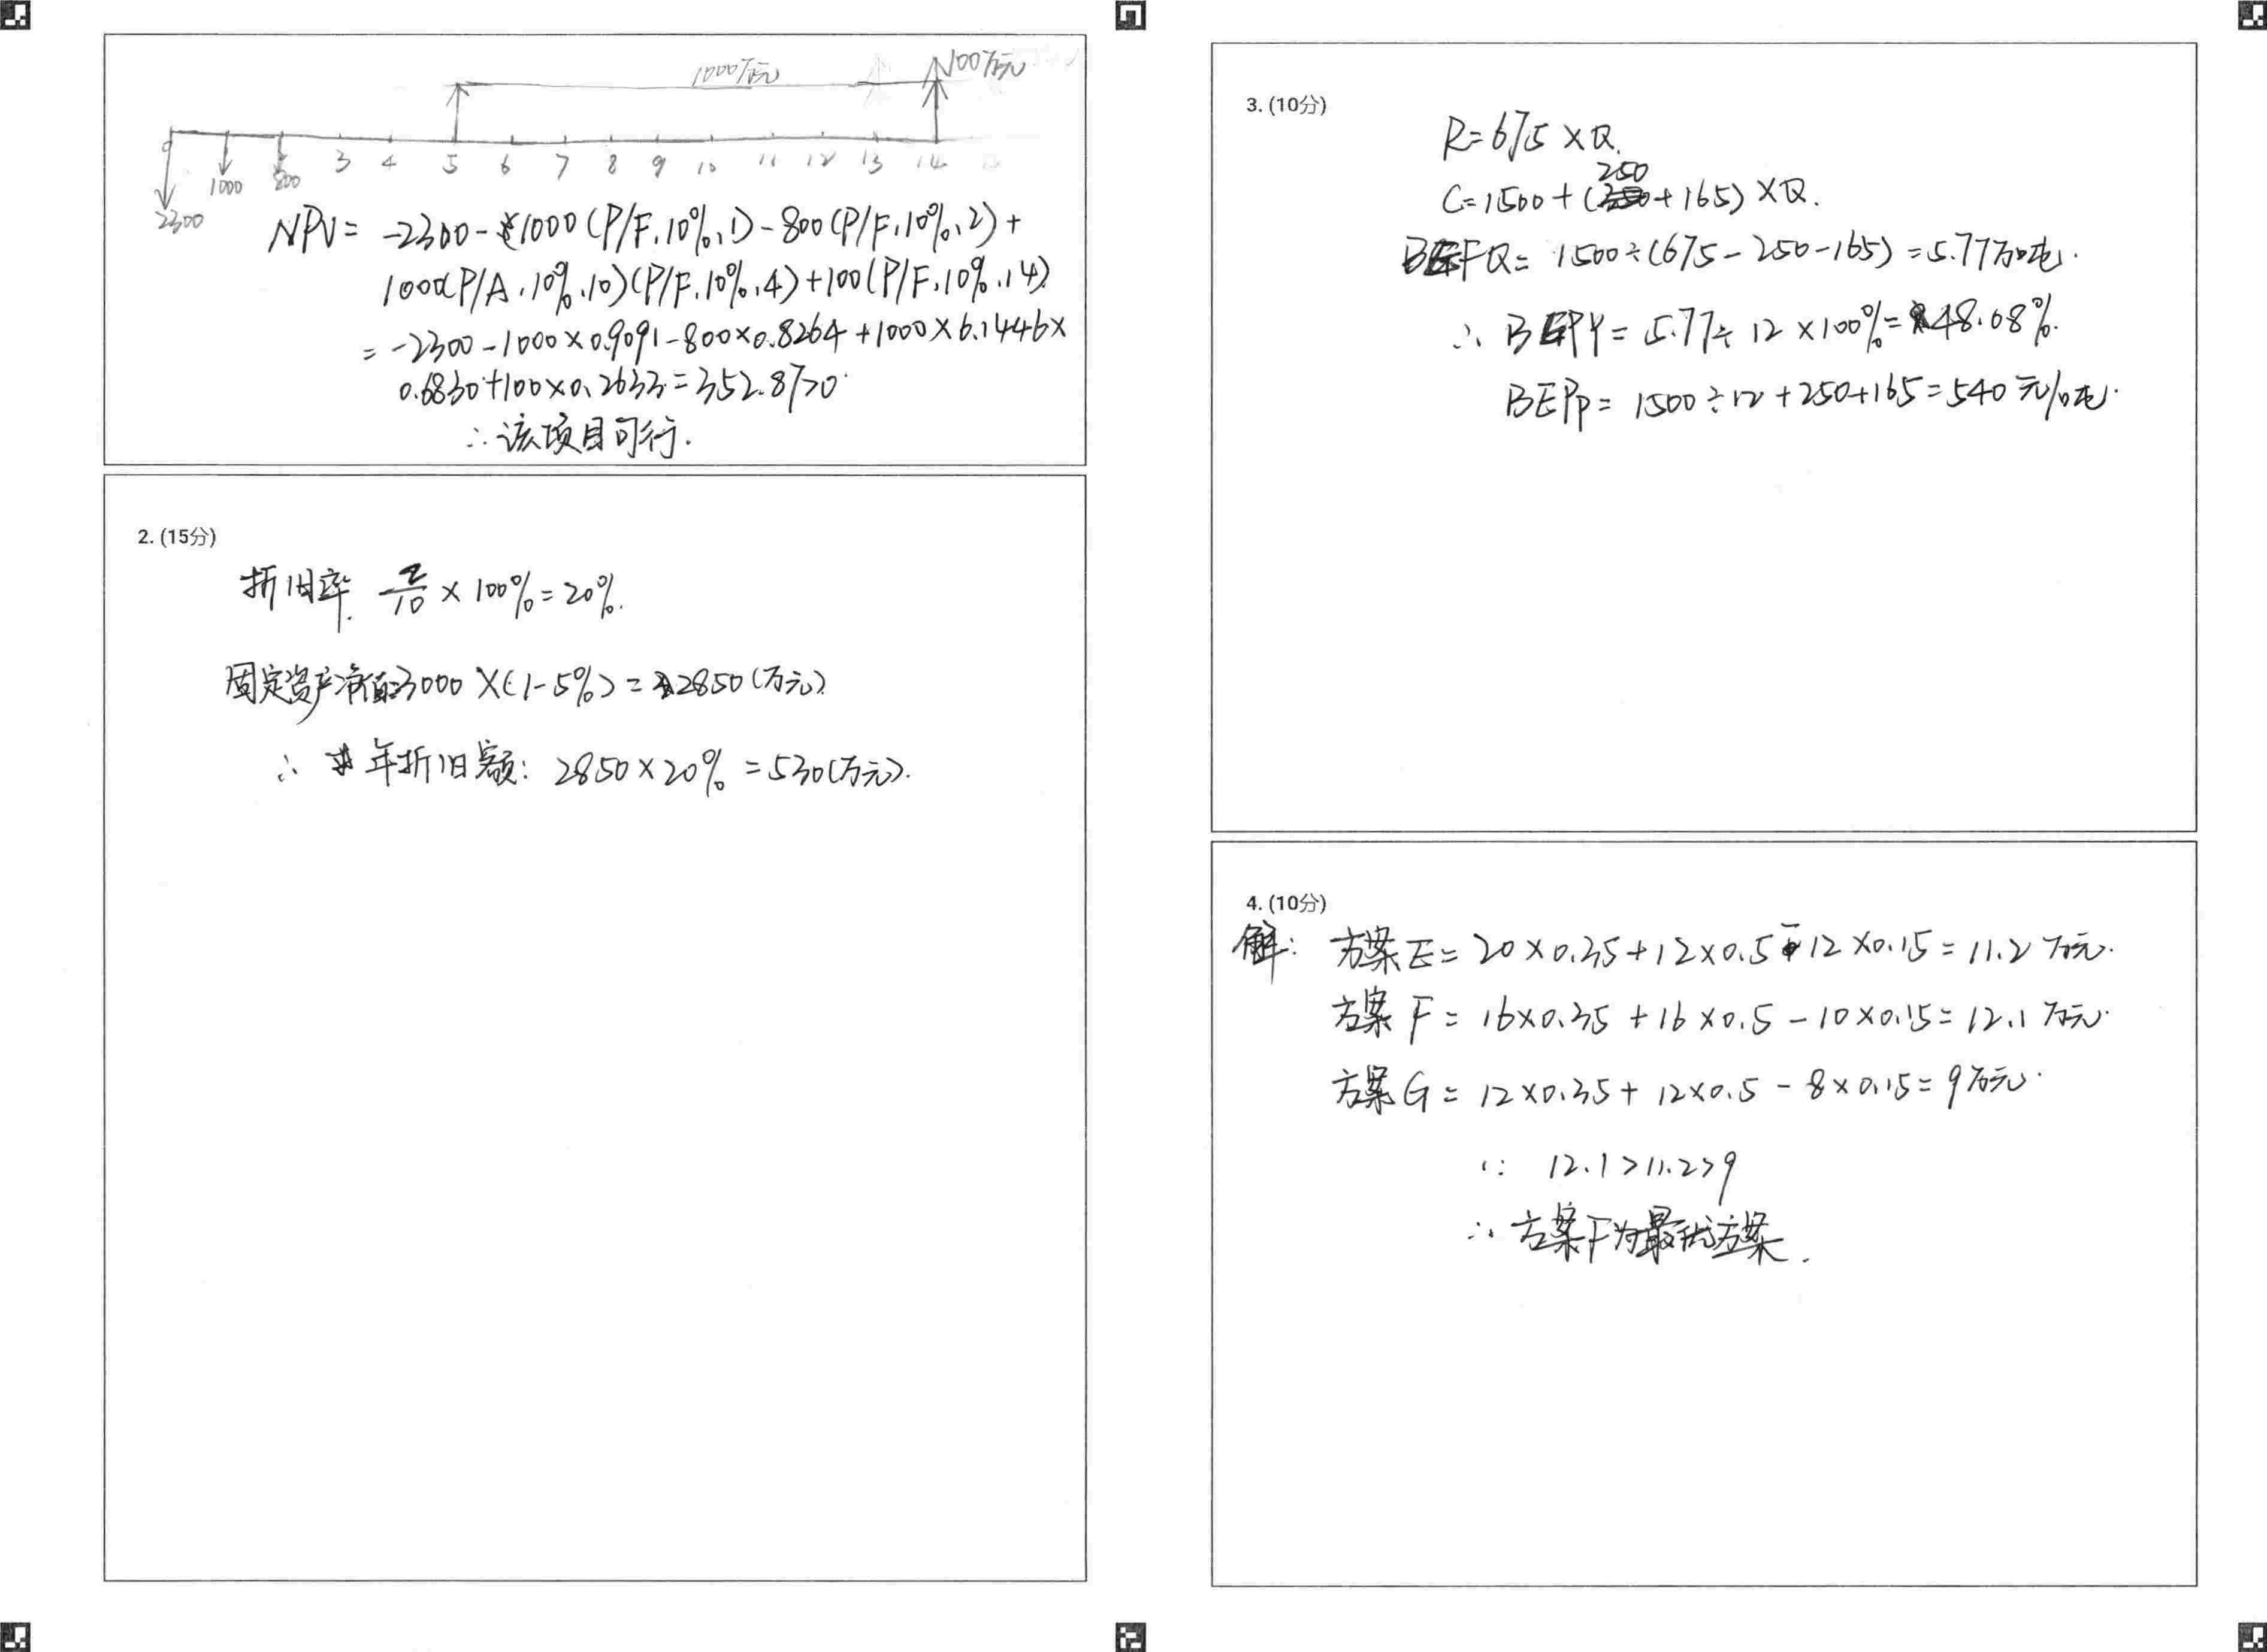 1000万元
100万元
3 4 5 6 7 8 9 10 11 12 13 14
2300 1000 800
NPV= -2300-1000(P/F,10%,1)-800(P/F,10%,2)+
1000(P/A,10%,10)(P/F,10%,4)+100(P/F,10%,14)
= -2300-1000×0.9091-800×0.8264+1000×6.1446×
0.6830+100×0.2633=352.87>0
∴该项目可行.
2. (15分)
折旧率 2/10 ×100%=20%.
固定资产净值:3000×(1-5%)=2850(万元)
∴ 年折旧额: 2850×20%=530(万元).
3. (10分)
R=675×Q.
C=1500+(250+165)×Q.
BEPQ= 1500÷(675-250-165)=5.77万吨.
∴ BEPY= 5.77÷12×100%=48.08%.
BEPp= 1500÷12+250+165=540元/吨.
4. (10分)
解: 方案E= 20×0.35+12×0.5-12×0.15=11.2万元.
方案F= 16×0.35+16×0.5-10×0.15=12.1万元.
方案G= 12×0.35+12×0.5-8×0.15=9万元.
∵ 12.1>11.2>9
∴ 方案F为最优方案.